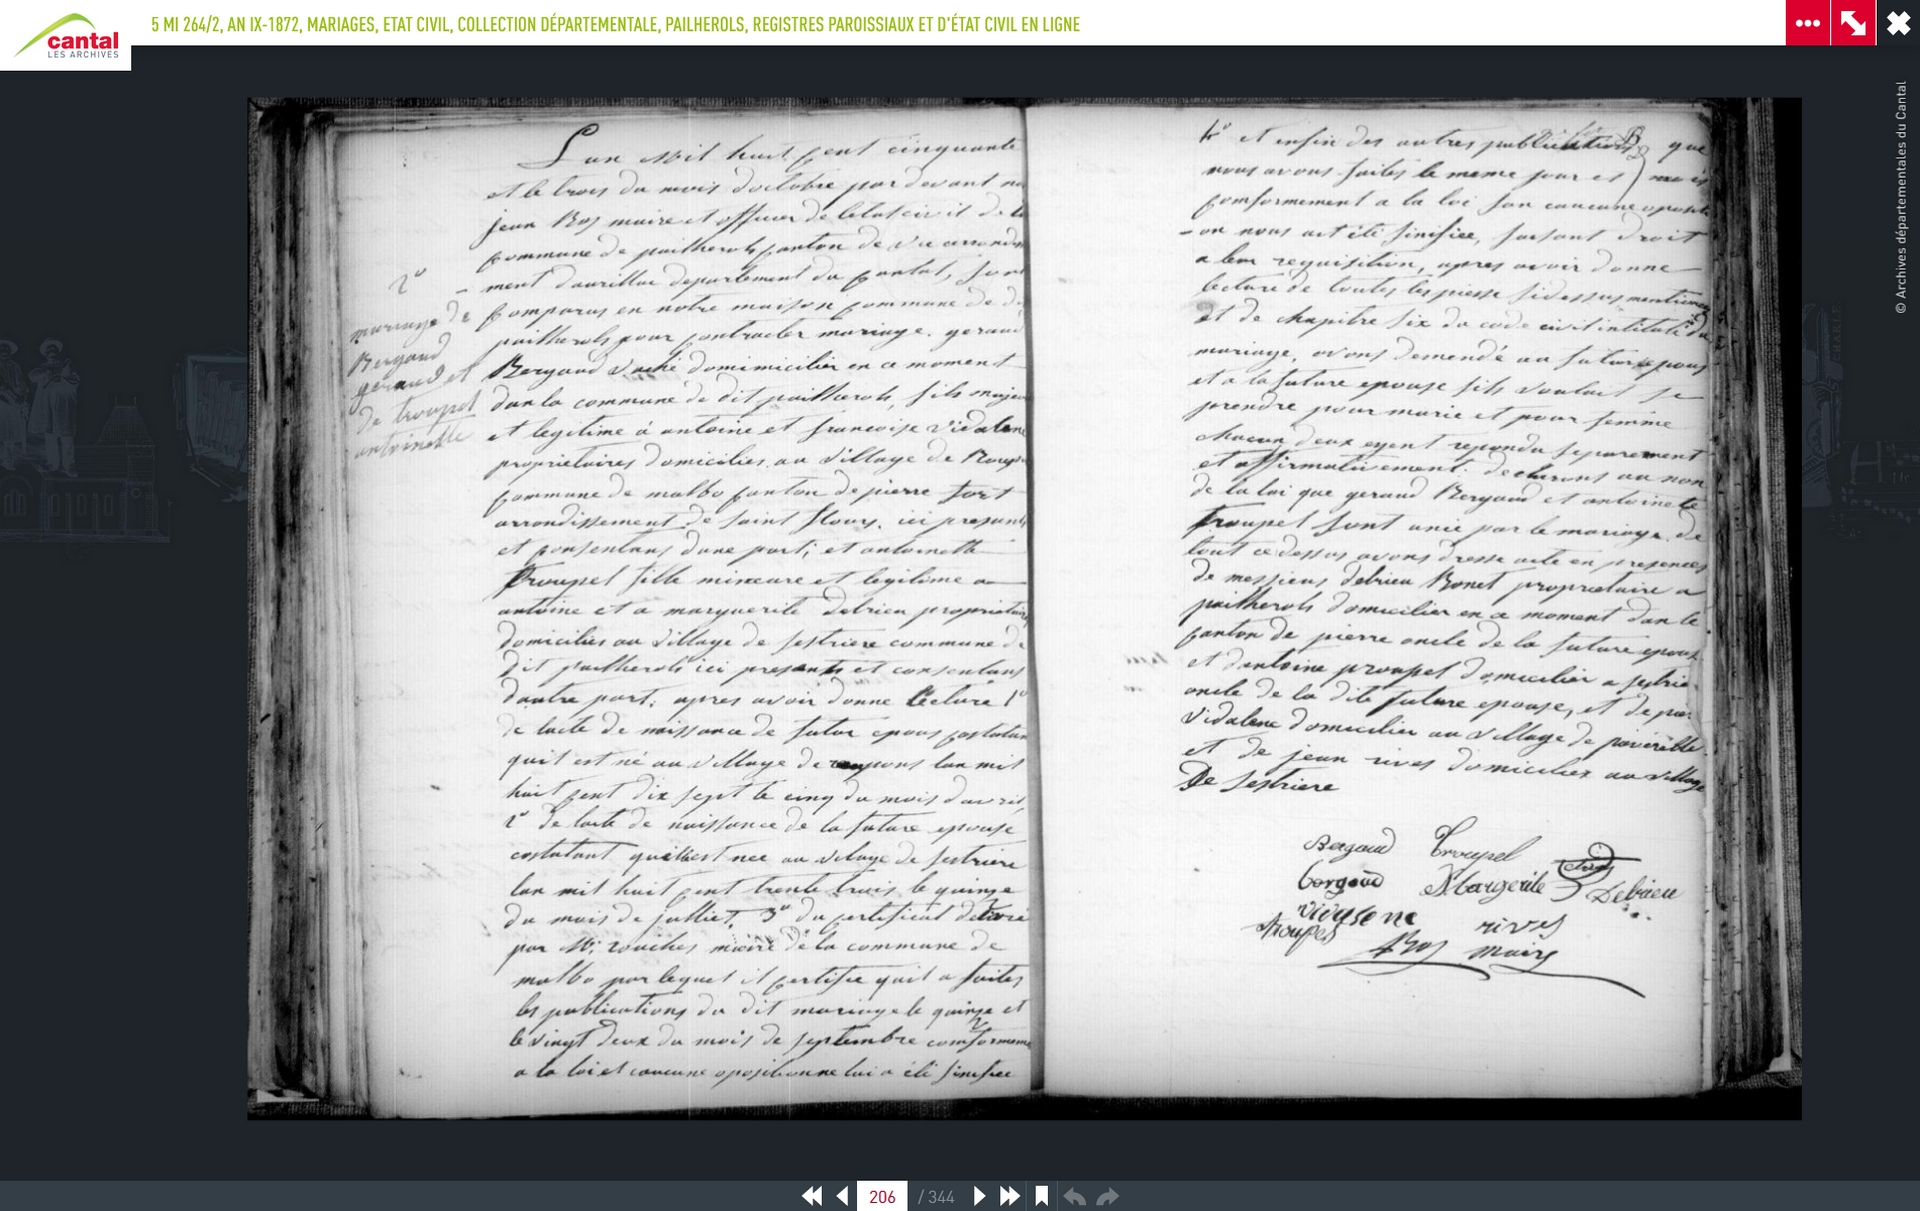 5 MI 264/2, AN IX-1872, MARIAGES, ETAT CIVIL, COLLECTION DÉPARTEMENTALE, PAILHEROLS, REGISTRES PAROISSIAUX ET D'ÉTAT CIVIL EN LIGNE
cantal
LES ARCHIVES
© Archives départementales du Cantal
2°
mariage de
Bergaud
geraud et
de troupel
antoinette
L'an Mil huit cent cinquante
et le trois du mois doctobre par devant
jean Bos maire et officier de letat civil de la
commune de pailherols canton de vic
ment daurillac departement du Cantal, sont
comparus en notre maison commune de
pailherols pour contracter mariage. geraud
Bergaud domimicilier en ce moment
dan la commune de dit pailherols, fils majeur
et legitime à antoine et francoise vidalene
proprietaires domicilies au village de
commune de malbo canton de pierre fort
arrondissement de saint flour, ici presants
et consentans dune part; et antoinette
Troupel fille mineure et legitime a
antoine et a marguerite Debrieu proprietaires
domicilies au village de sestriere commune de
dit pailherols ici presants et consentans
dautre part, apres avoir donne lecture 1°
de lacte de naissance de futur epous
quil est né au village de lan mil
huit cent dix sept le cinq du mois davril,
2° de lacte de naissance de la future epouse
costatant quelle est nee au vilage de sestriere
lan mil huit cent trente trois le quinze
du mois de julliet, 3° du certificat delivré
par Mr maire de la commune de
malbo par lequel il certifie quil a faites
les publications du dit mariage le quinze et
le vingt deux du mois de septembre
a la loi et caucune oposition ne lui a été sinifiee
4° et enfin des autres publications que
nous avons faites le meme jour et mois
comformement a la loi san caucune oposit
-on nous aet été sinifiee, faisant droit
a leur requisition, apres avoir donne
lecture de toutes les piesse sidessus mentionees
et de chapitre six du code civil intitulé du
mariage, avons demendé au futur epous
et a la future epouse sils voulait se
prendre pour marie et pour femme
chacun deux eyent repondu separement
et affirmativement. declarons au non
de la loi que geraud Bergaud et antoinette
troupel sont unis par le mariage. de
tout ce dessus avons dresse acte en presences
de messieus debrieu Bonet proprietaire a
pailherols domicilier en ce moment dan le
canton de pierre oncle de la future epouse
et dantoine proupel domicilier a sestrie
oncle de la dite future epouse, et de
vidalene domicilier au village de
et de jean rives domicilier au village
De sestriere
Bergaud Troupel
bergaud Margerite Debrieu
vidalene rives
troupel Bos maire
206 / 344